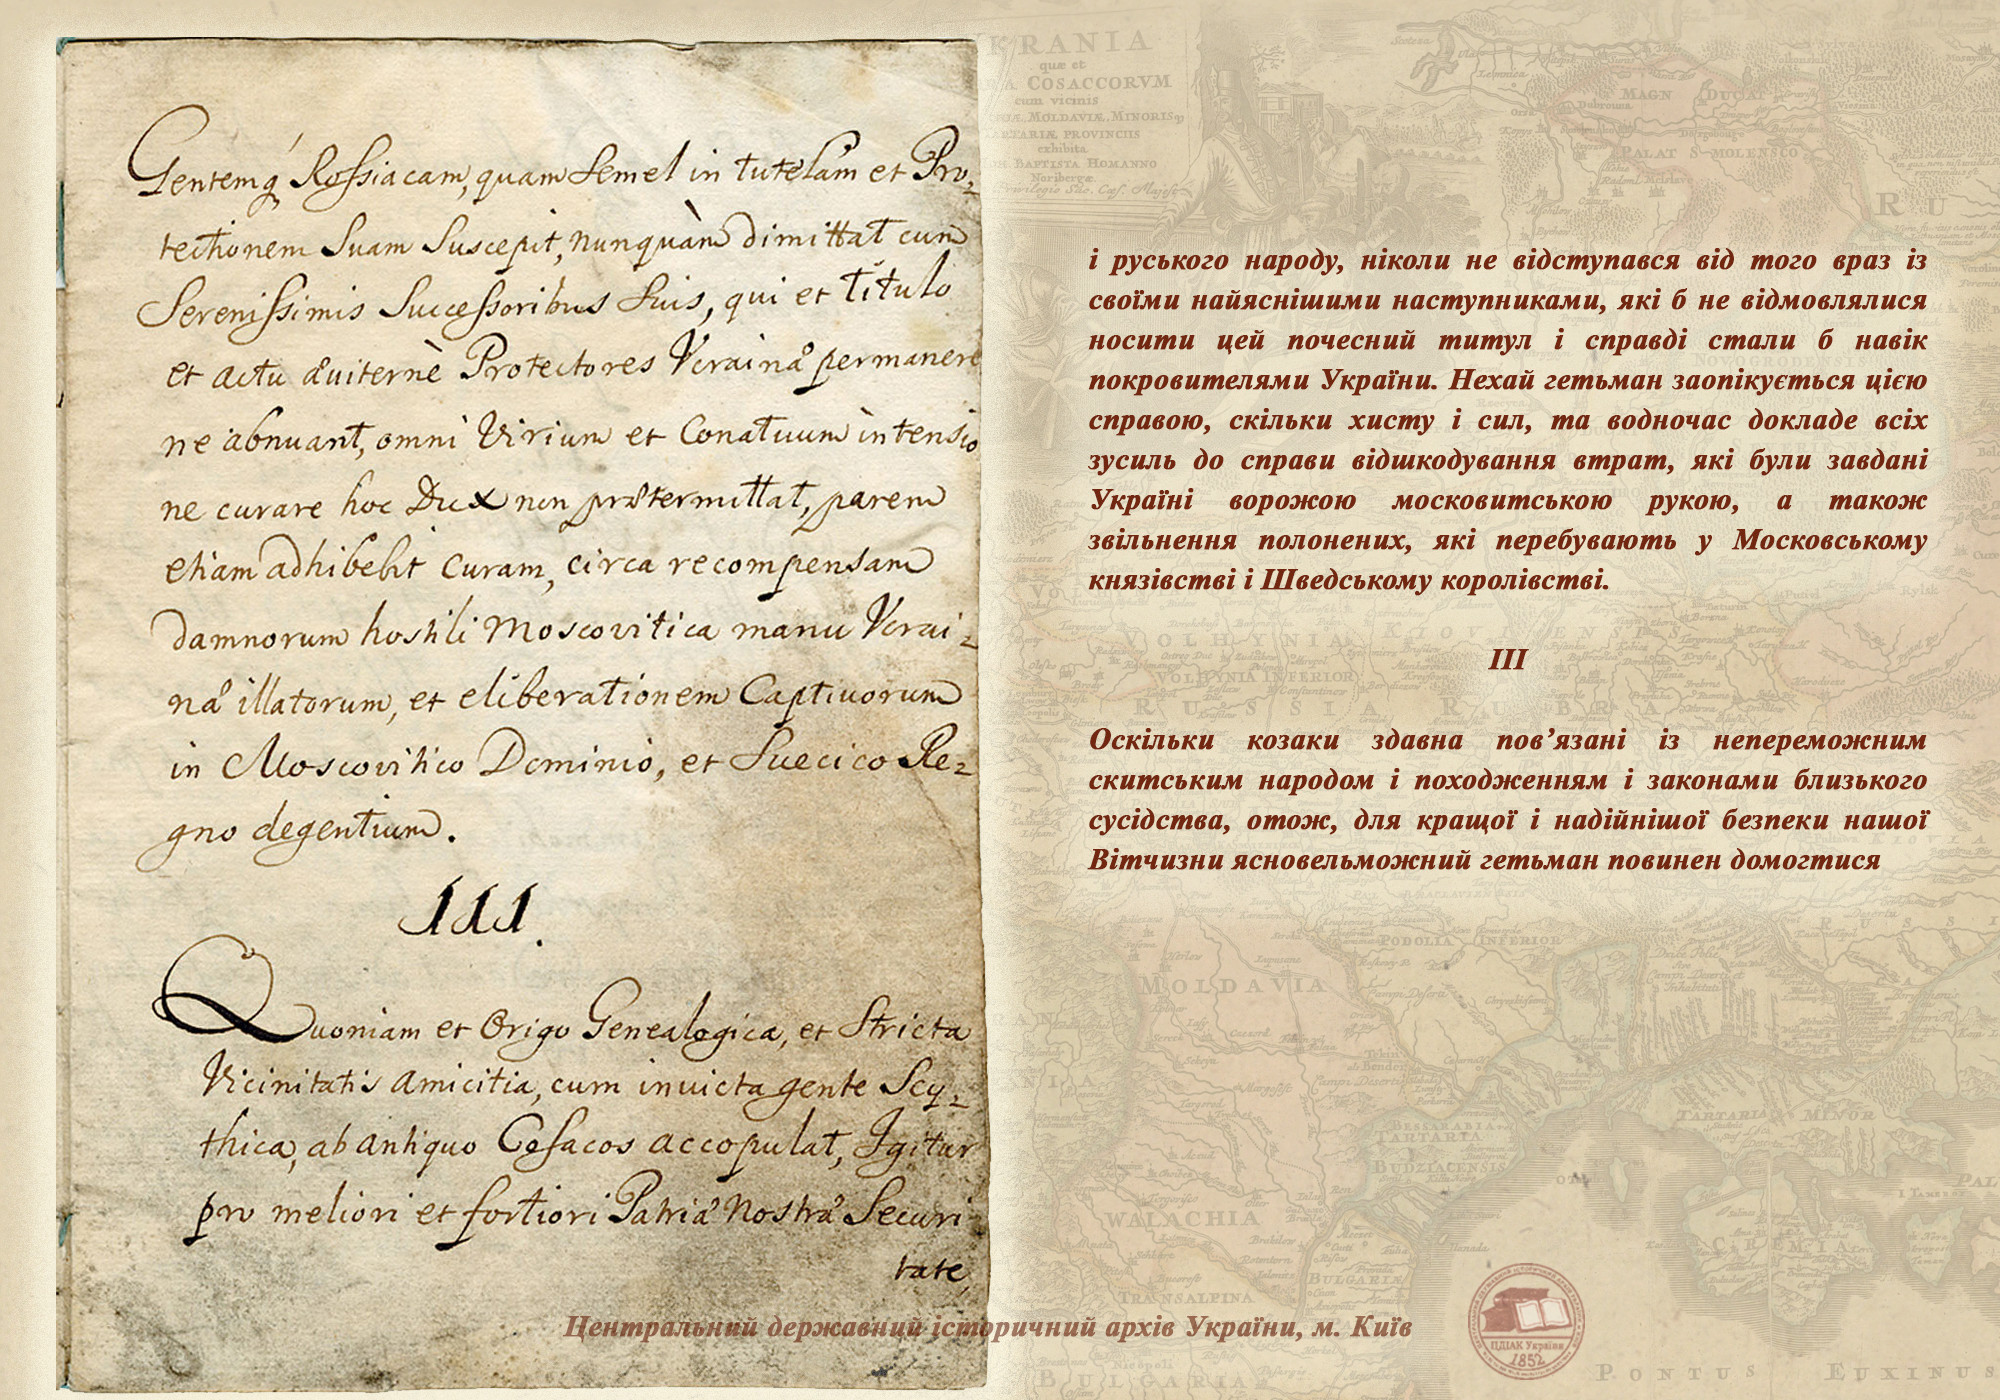 Gentemq́ Rossiacam, quam Semel in tutelam et Pro-
tectionem Suam Suscepit, nunquàm dimittat cum
Serenissimis Successoribus Suis, qui et titulo
et actu æviternè Protectores Ucrainæ permanere
ne abnuant, omni Virium et Conatuum intensio
ne curare hoc Dux non prætermittat, parem
etiam adhibebit curam, circa recompensam
damnorum hostili Moscovitica manu Ucrai-
næ illatorum, et eliberationem Captivorum
in Moscovitico Dominio, et Suecico Re-
gno degentium.
III.
Quoniam et Origo Genealogica, et Stricta
Vicinitatis amicitia, cum invicta gente Scy-
thica, ab antiquo Cosacos accopulat, Igitur
pro meliori et fortiori Patriæ Nostræ Securi-
tate,
і руського народу, ніколи не відступався від того враз із
своїми найяснішими наступниками, які б не відмовлялися
носити цей почесний титул і справді стали б навік
покровителями України. Нехай гетьман заопікується цією
справою, скільки хисту і сил, та водночас докладе всіх
зусиль до справи відшкодування втрат, які були завдані
Україні ворожою московитською рукою, а також
звільнення полонених, які перебувають у Московському
князівстві і Шведському королівстві.
III
Оскільки козаки здавна пов’язані із непереможним
скитським народом і походженням і законами близького
сусідства, отож, для кращої і надійнішої безпеки нашої
Вітчизни ясновельможний гетьман повинен домогтися
Центральний державний історичний архів України, м. Київ
ЦДІАК України
1852
KRANIA
quæ et
COSACCORVM
cum vicinis
MOLDAVIÆ, MINORIS
TARTARIÆ PROVINCIIS
exhibita
BAPTISTA HOMANNO
Noribergæ
MAGN DUCAT
PALAT SMOLENSCO
RU
VOLHYNIA
KIOVIENSIS
VOLHYNIA INFERIOR
RUSSIA RUBRA
PODOLIA INFERIOR
MOLDAVIA
BESSARABIA
TARTARIA
BUDZIACENSIS
TARTARIA MINOR
WALACHIA
CRIMEA
TRANSALPINA
BULGARIA
BULGARIA
PONTUS EUXINUS